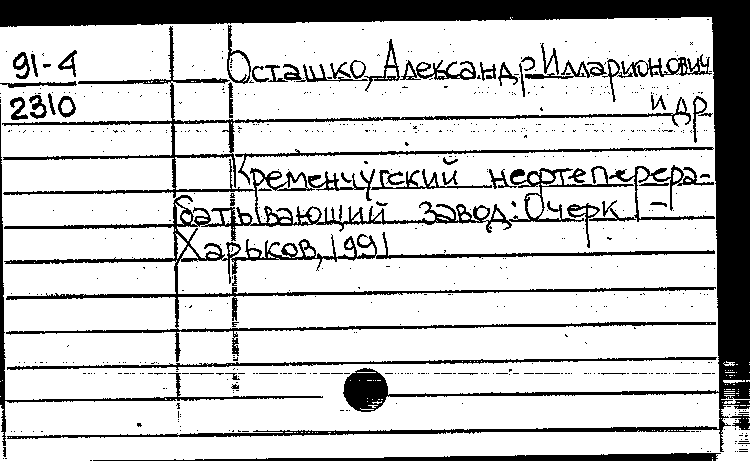 91-4
2310
Осташко, Александр Илларионович
и др
Кременчугский нефтеперера-
батывающий завод: Очерк | -
Харьков, 1991